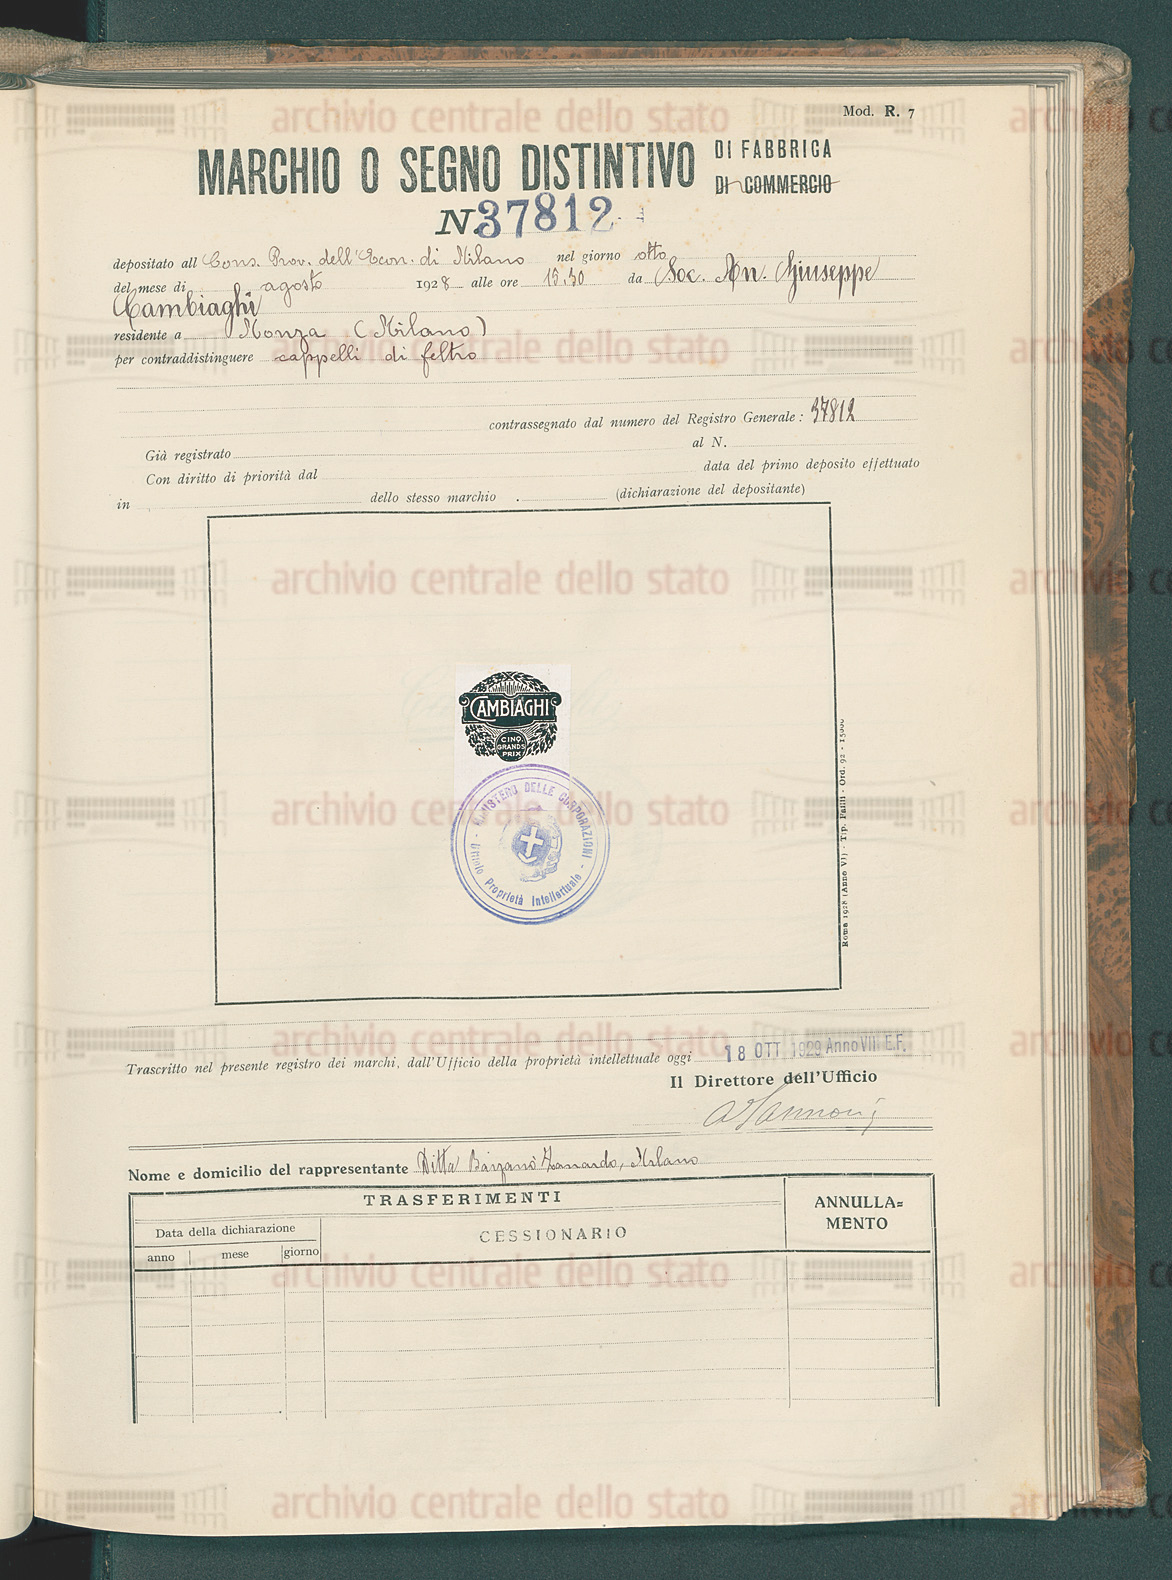 Mod. R. 7
MARCHIO O SEGNO DISTINTIVO DI FABBRICA
DI COMMERCIO
N. 37812
depositato all Cons. Prov. dell'Econ. di Milano nel giorno otto
del mese di agosto 1928 alle ore 15.30 da Soc. An. Giuseppe
Cambiaghi
residente a Monza (Milano)
per contraddistinguere cappelli di feltro
contrassegnato dal numero del Registro Generale: 37812
Già registrato al N.
Con diritto di priorità dal data del primo deposito effettuato
in dello stesso marchio . (dichiarazione del depositante)
CAMBIAGHI
CINQ.
GRANDS
PRIX
MINISTERO DELLE CORPORAZIONI
Ufficio Proprietà Intellettuale
Roma 1928 (Anno VI) - Tip. Failli - Ord. 92 - 15000
Trascritto nel presente registro dei marchi, dall'Ufficio della proprietà intellettuale oggi 18 OTT 1929 Anno VII E.F.
Il Direttore dell'Ufficio
Nome e domicilio del rappresentante Ditta Barzanò Zanardo, Milano
TRASFERIMENTI
ANNULLA=
MENTO
Data della dichiarazione
CESSIONARIO
anno mese giorno
archivio centrale dello stato
archivio centrale dello stato
archivio centrale dello stato
archivio centrale dello stato
archivio centrale dello stato
archivio centrale dello stato
archivio centrale dello stato